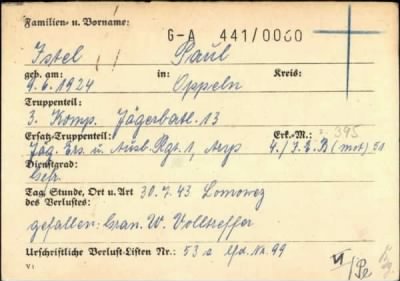 Familien- u. Vorname:
G-A 441/0060
Istel Paul
geb. am: in: Kreis:
9.6.1924 Oppeln
Truppenteil:
3. Komp. Jägerbatl. 13
Ersatz-Truppenteil: Erk.-M.: 395
Jäg. Ers. u. Ausb. Rgt. 1, Arys 4./J.E.B (mot) 51
Dienstgrad:
Gefr.
Tag, Stunde, Ort u. Art 30.7.43 Lomowez
des Verlustes:
gefallen: Gran. W. Volltreffer
Urschriftliche Verlust-Listen Nr.: 53 a lfd. Nr. 99
V 1
VI/Pe